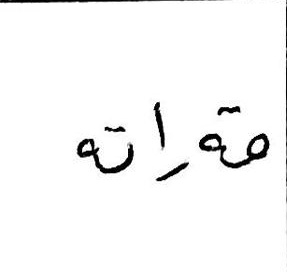 مقراته